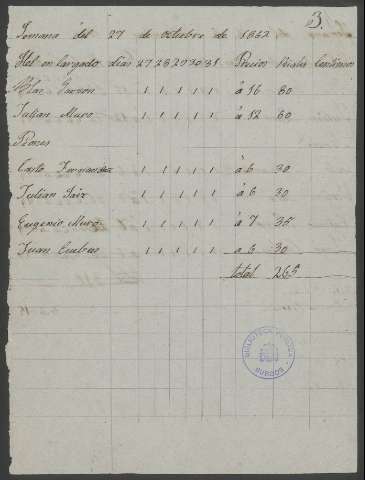 3
Semana del 27 de octubre de 1862
El en cargado dias 27 28 29 30 31 Precios Reales Centimos
Blas 1 1 1 1 1 á 16 80
Julian Muro 1 1 1 1 1 á 12 60
Peones
Casto Fernandez 1 1 1 1 1 á 6 30
Julian 1 1 1 1 1 á 6 30
Eugenio Muro 1 1 1 1 1 á 7 35
Juan 1 1 1 1 1 á 6 30
total 265
BIBLIOTECA PUBLICA
BURGOS